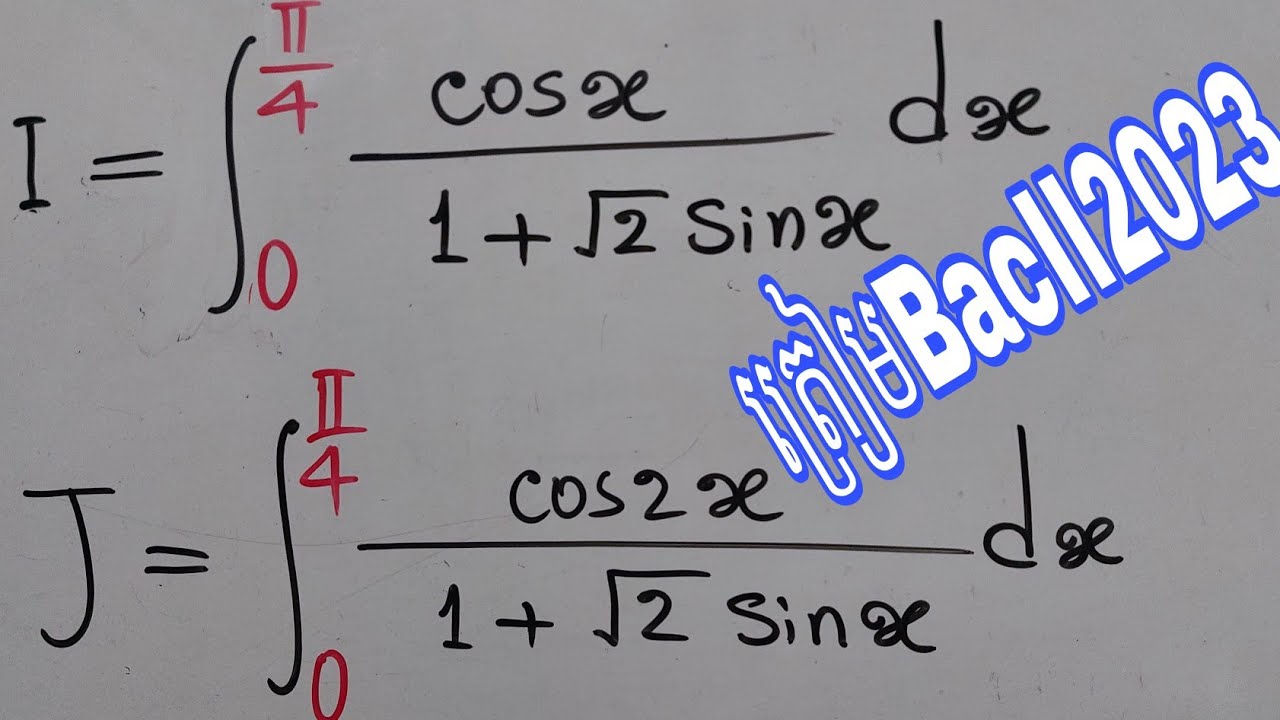 I = ∫₀^{π/4} cosx / (1 + √2 sinx) dx
ត្រៀមBacII2023
J = ∫₀^{π/4} cos2x / (1 + √2 sinx) dx